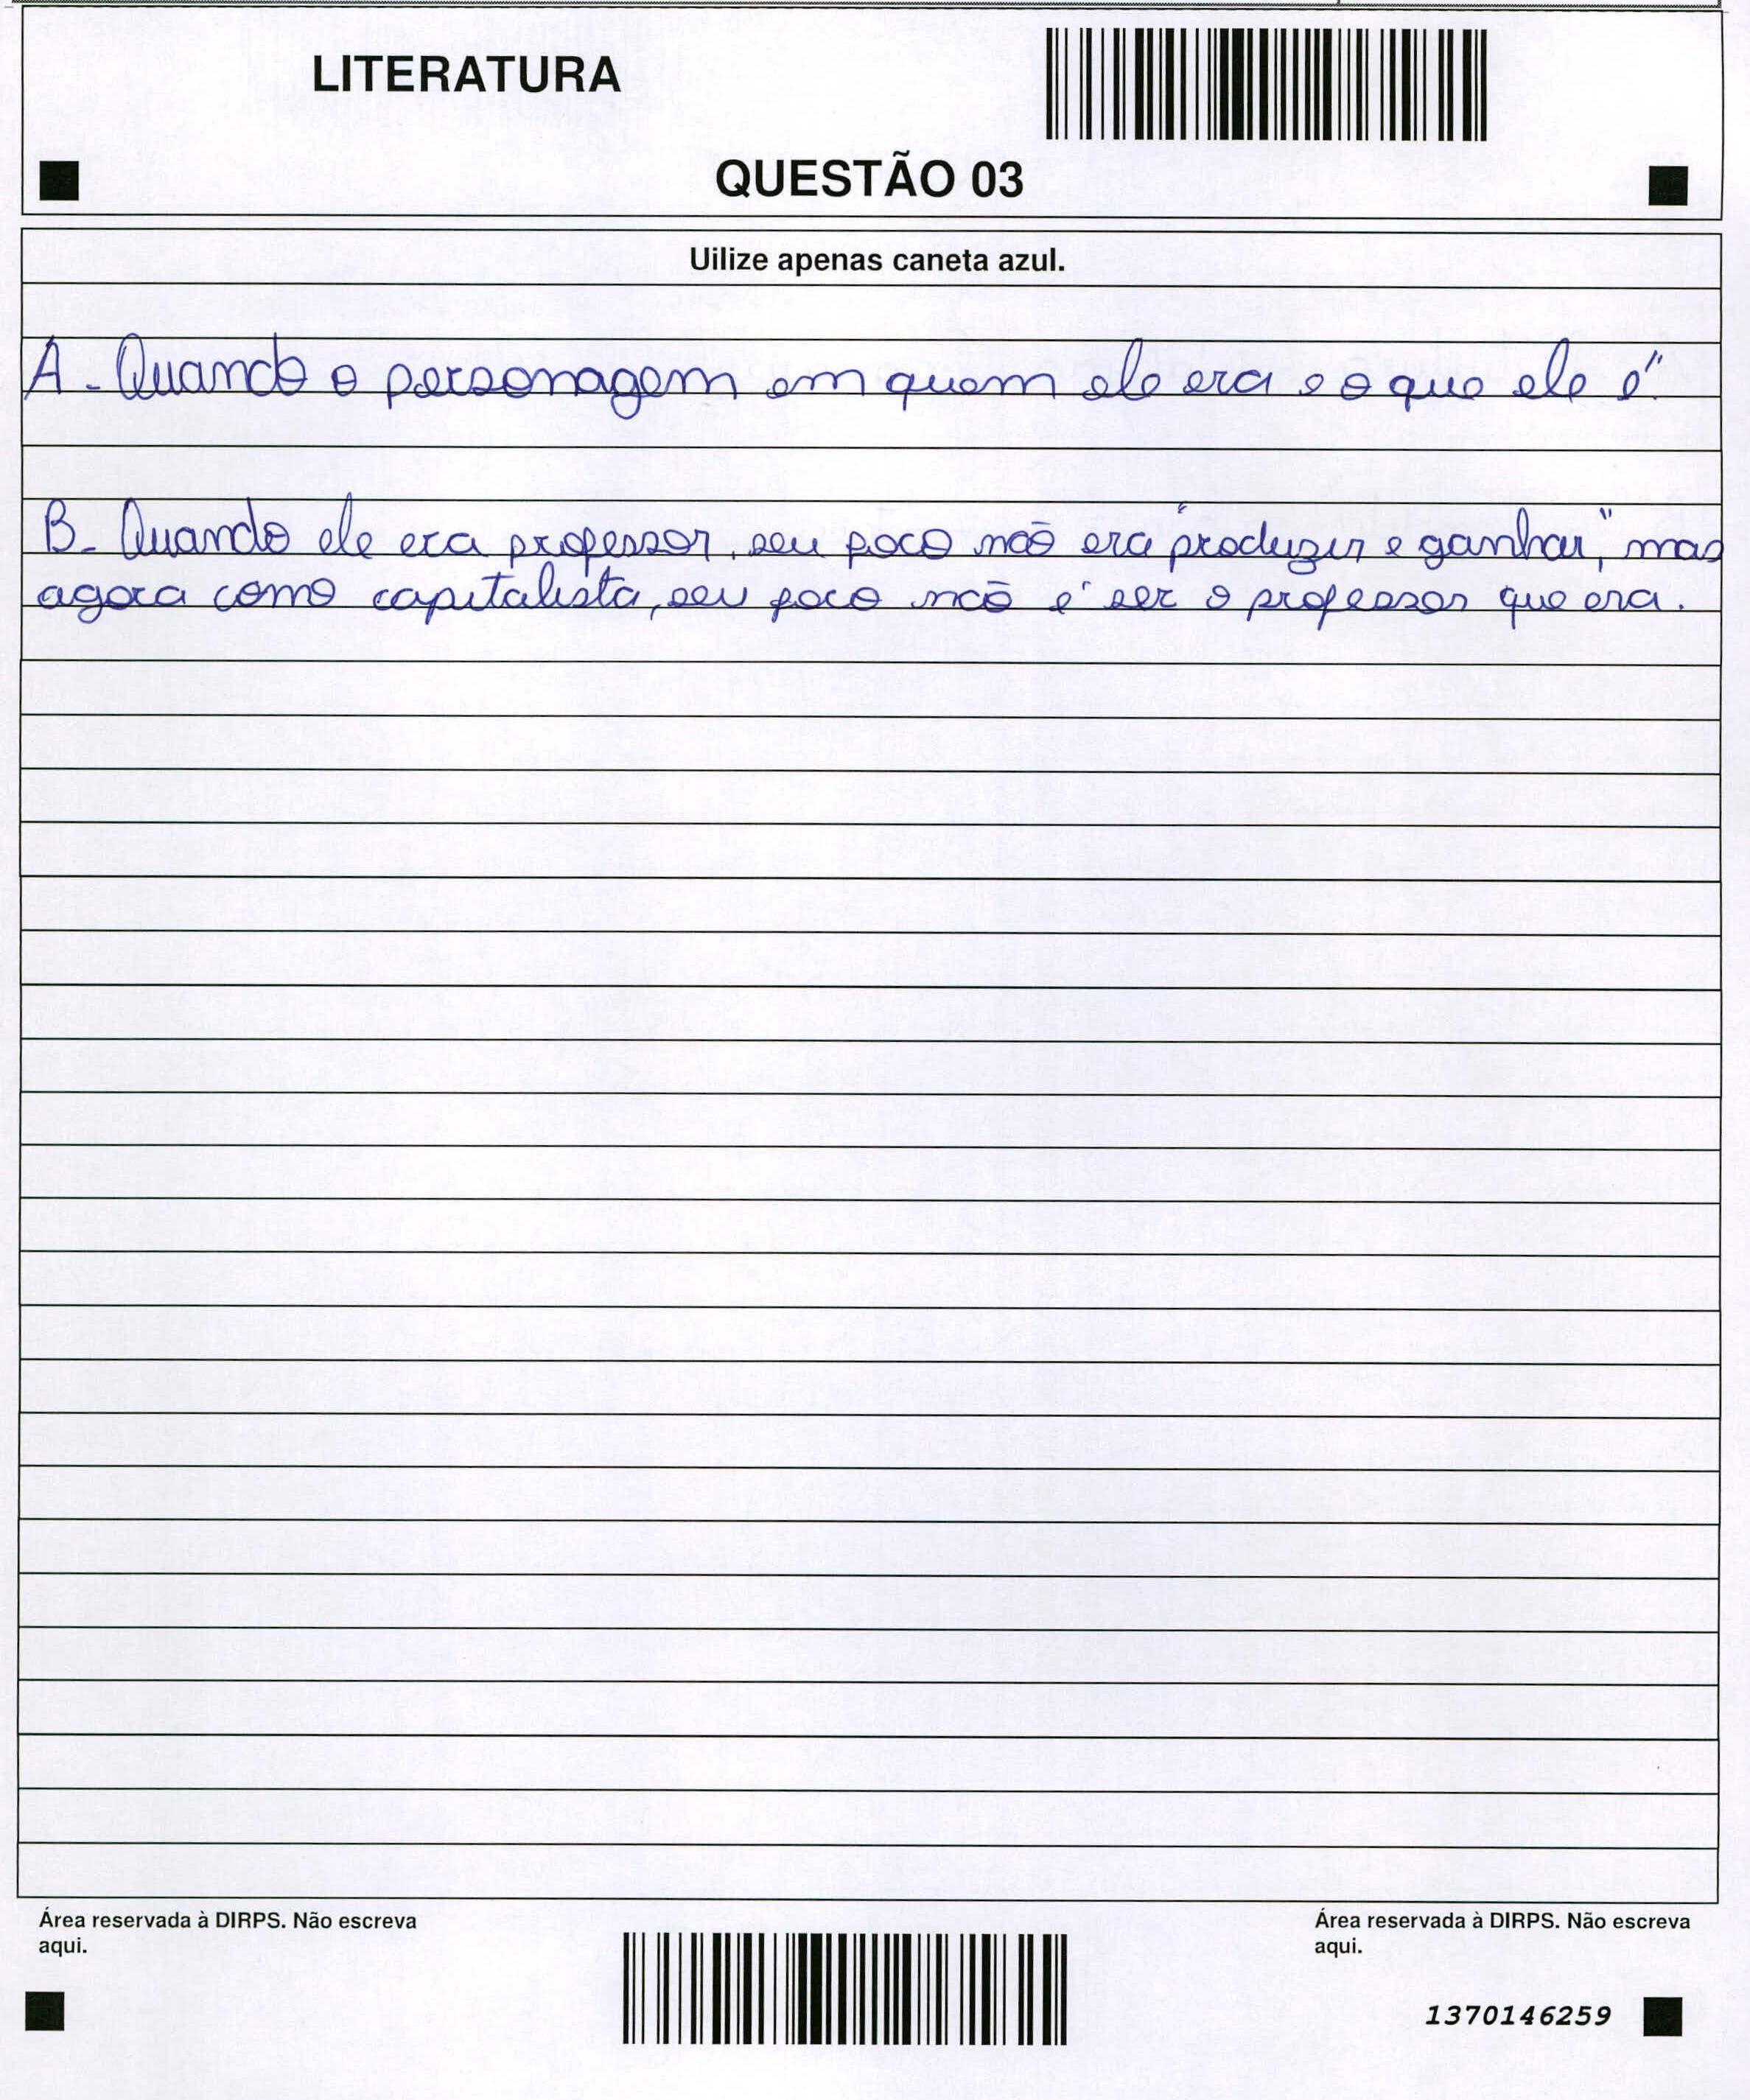 LITERATURA
QUESTÃO 03
Uilize apenas caneta azul.
A - Quando o personagem em quem ele era e o que ele é"
B - Quando ele era professor, seu foco não era "produzir e ganhar", mas
agora como capitalista, seu foco não é ser o professor que era.
Área reservada à DIRPS. Não escreva
aqui.
Área reservada à DIRPS. Não escreva
aqui.
1370146259